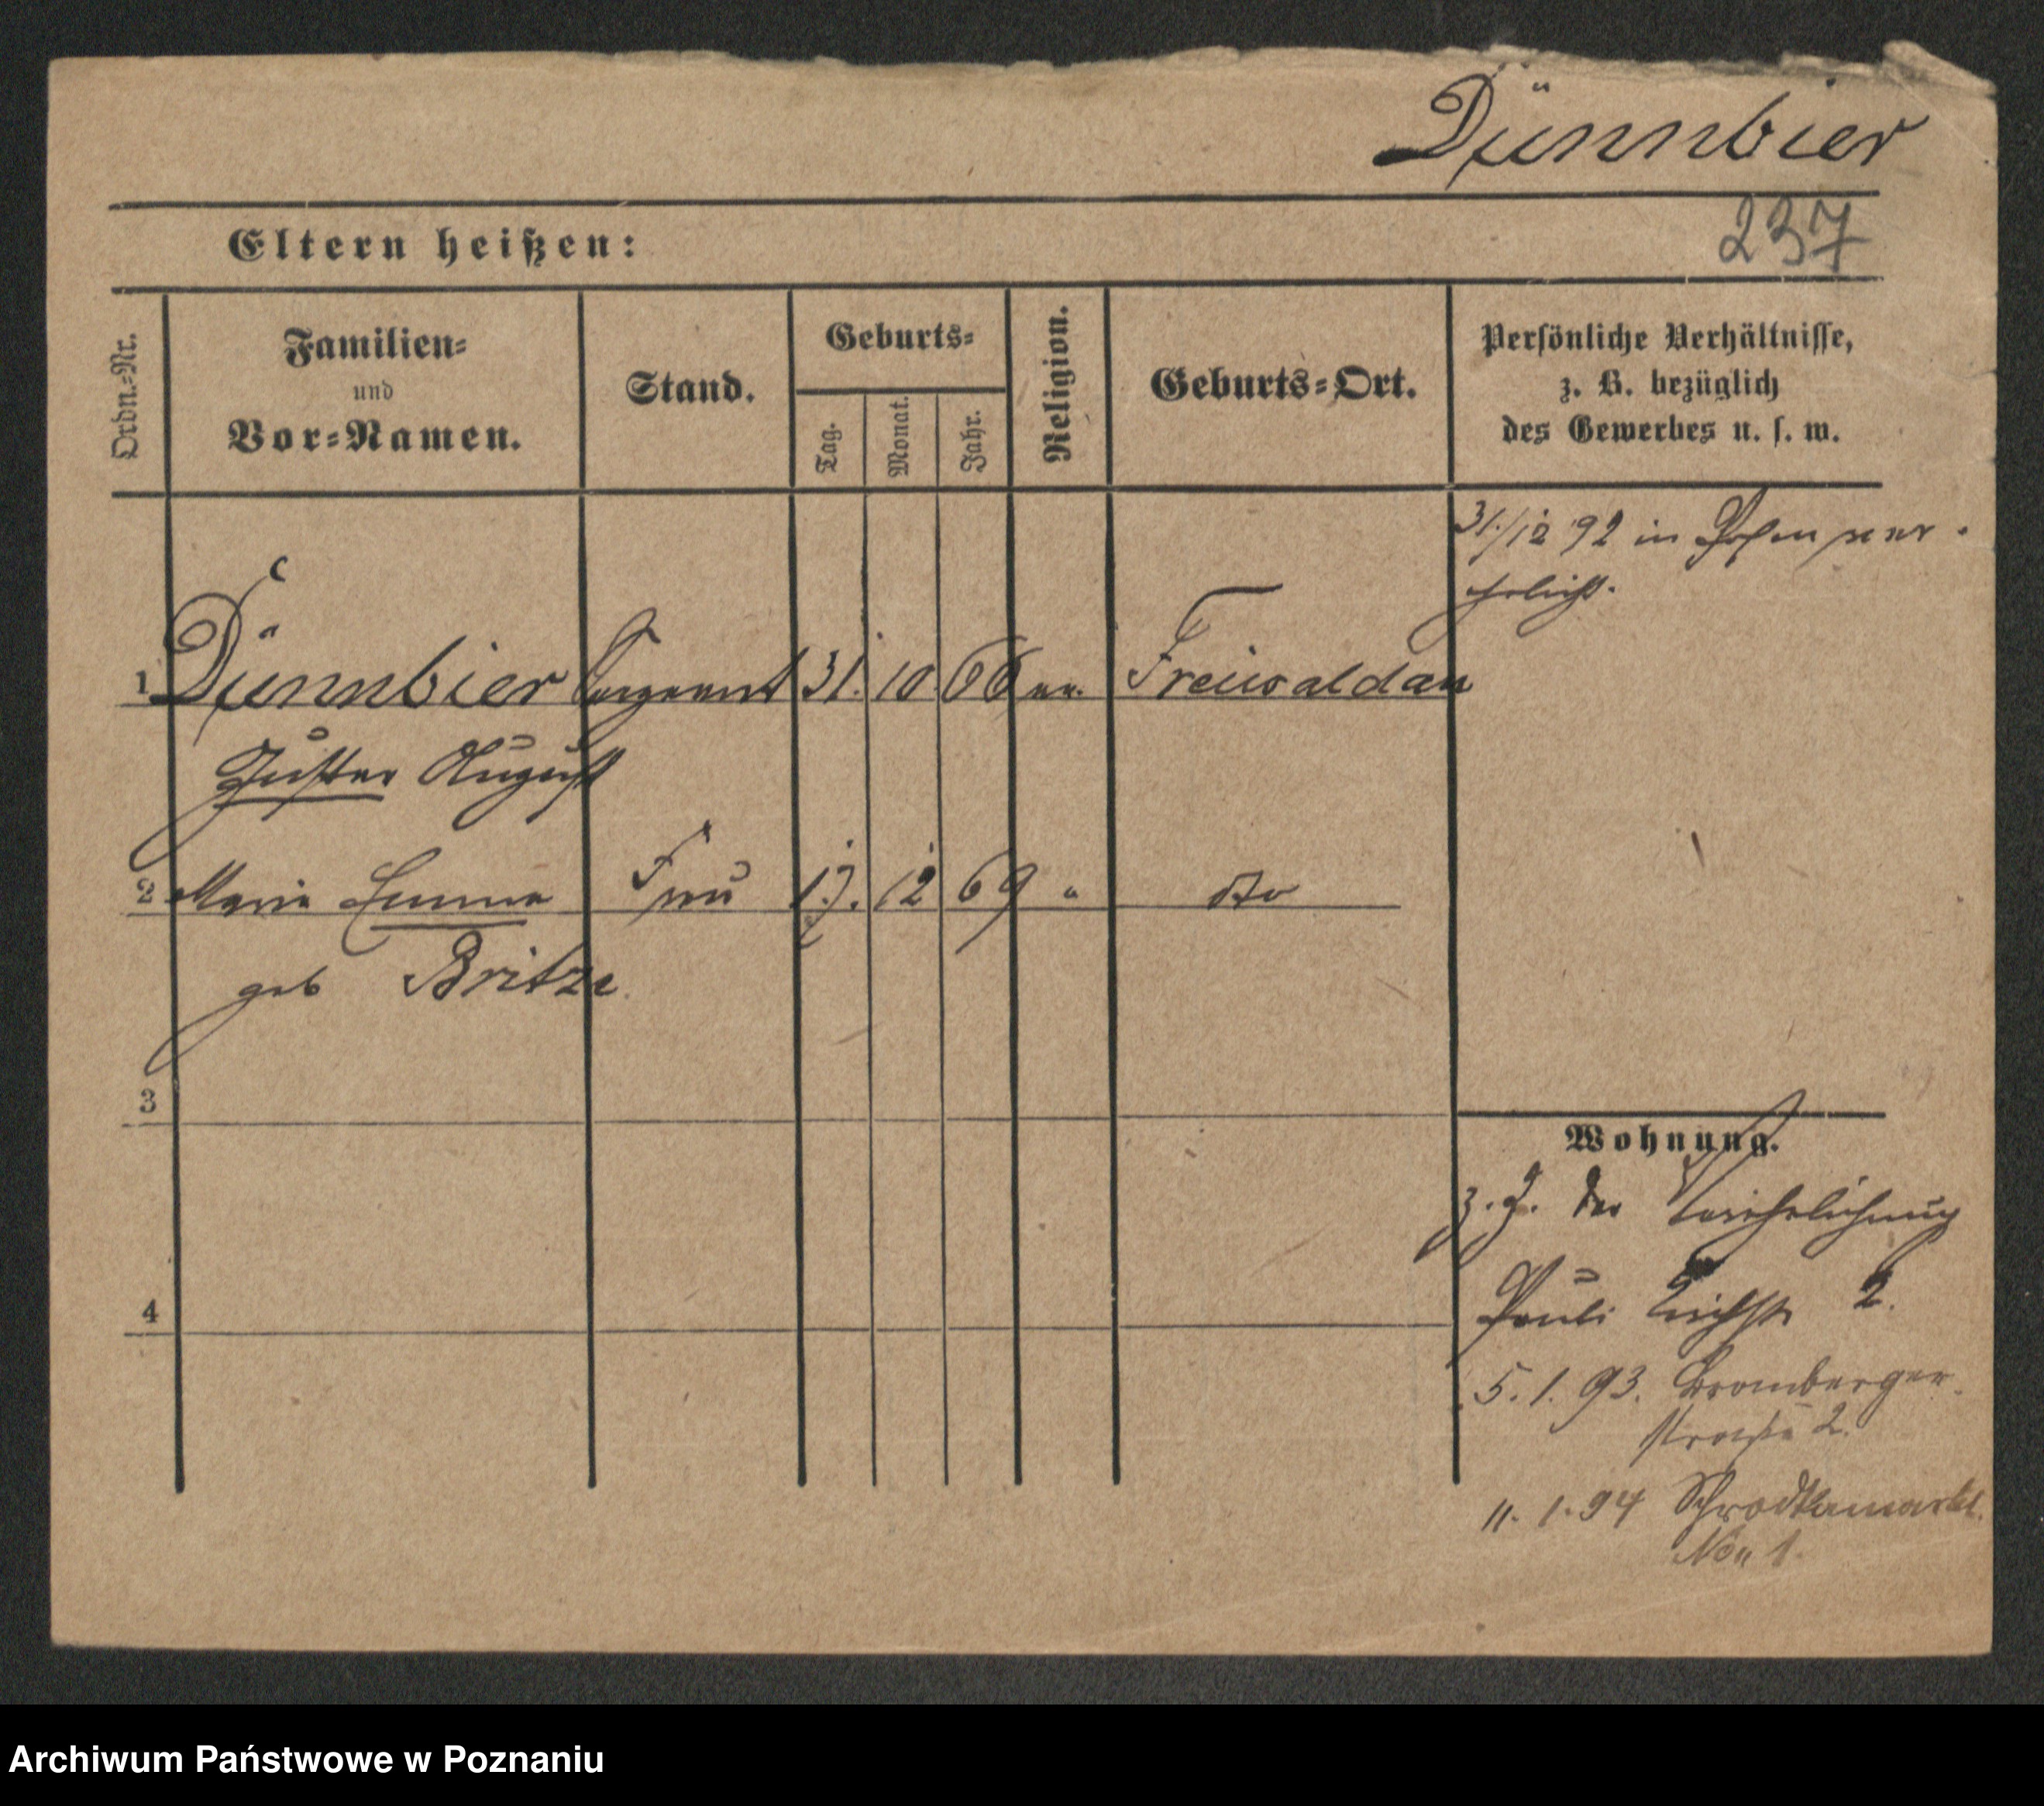 Dünnbier
237
Eltern heißen:
Ordn.=Nr.
Familien=
und
Vor=Namen.
Stand.
Geburts=
Tag.
Monat.
Jahr.
Religion.
Geburts=Ort.
Persönliche Verhältnisse,
z. B. bezüglich
des Gewerbes u. s. w.
31./12 92 in Posen ver-
ehelicht.
1 Dünnbier Sergeant 31. 10. 66 ev. Freiwaldau
Gustav August
2 Marie Emma Frau 17. 12 69 " dto
geb Britze
3
4
Wohnung.
z. Z. der Verehelichung
Pauli Kirchstr 2.
5. 1. 93. Bromberger-
straße 2.
11. 1. 94 Schrodkamarkt
No 1.
Archiwum Państwowe w Poznaniu